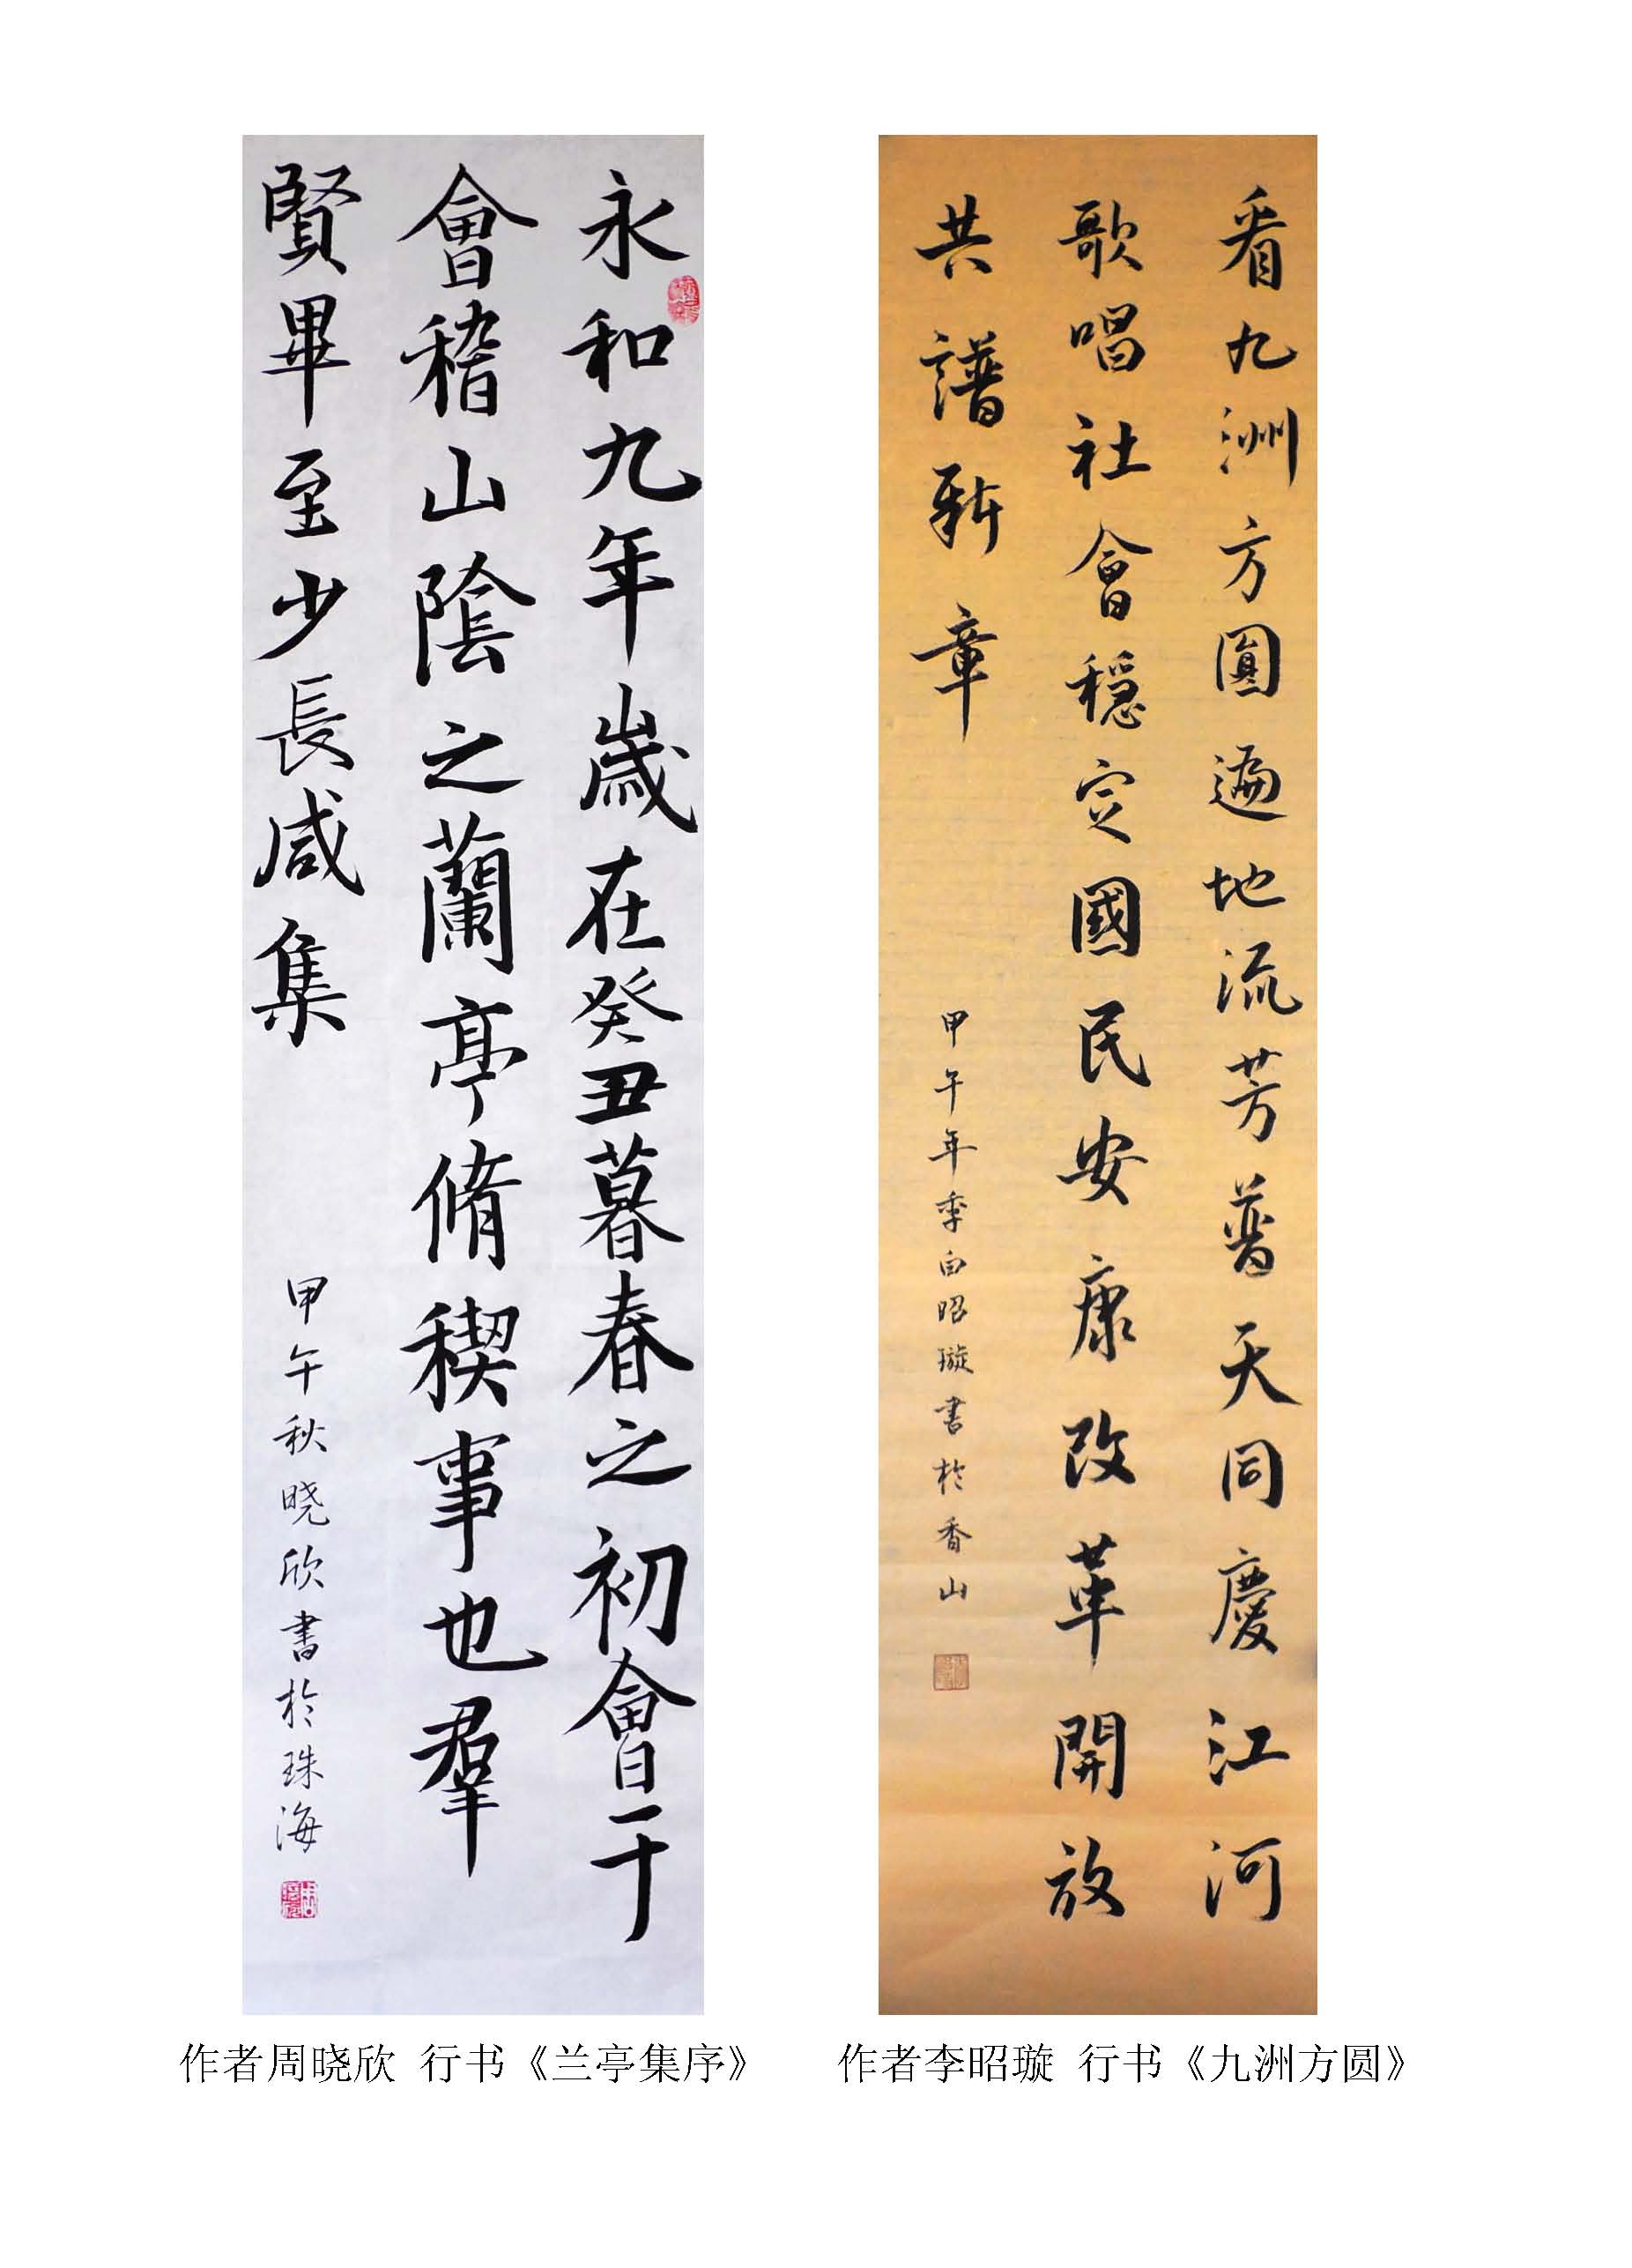 永和九年歲在癸丑暮春之初會于
會稽山陰之蘭亭脩稧事也羣
賢畢至少長咸集
甲午秋晓欣書於珠海
看九洲方圓遍地流芳普天同慶江河
歌唱社會穩定國民安康改革開放
共譜新章
甲午年季白昭璇書於香山
作者周晓欣 行书《兰亭集序》
作者李昭璇 行书《九洲方圆》